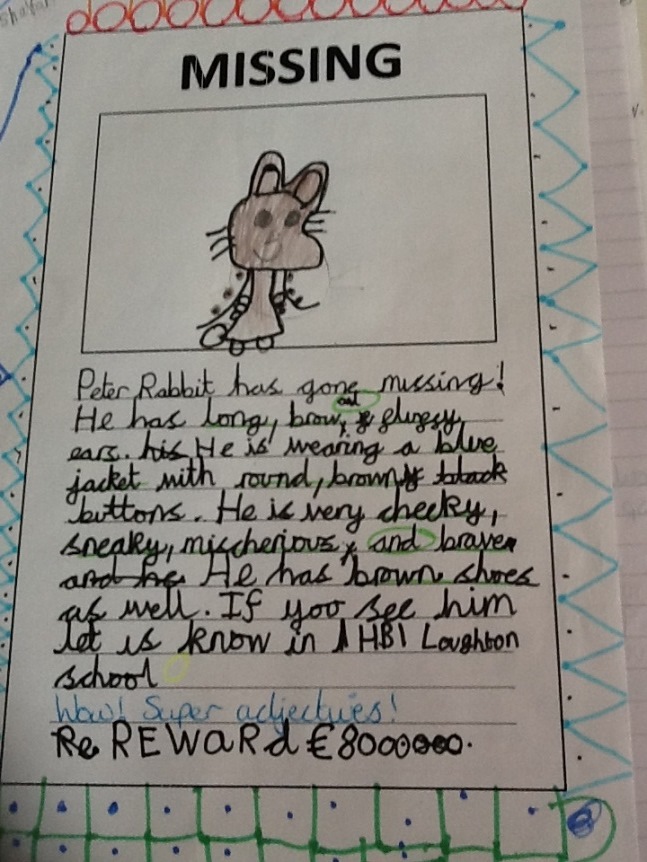 MISSING
Peter Rabbit has gone missing!
and
He has long, brow, & fluggsy
ears. his He is wearing a blue
jacket with round, brown black
buttons. He is very cheeky,
sneaky, mischerious, and brave.
and he He has brown shoes
as well. If you see him
let is know in 1HB1 Loughton
school
Wow! Super adjectives!
Re REWaRd €8000000.